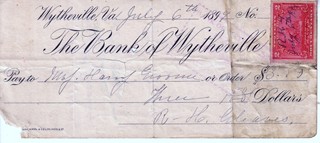 Wytheville, Va July 6th 1898 No.
The Bank of Wytheville
Pay to Maj. Harry or Order $3.
Three Dollars
R. H. Cleaves